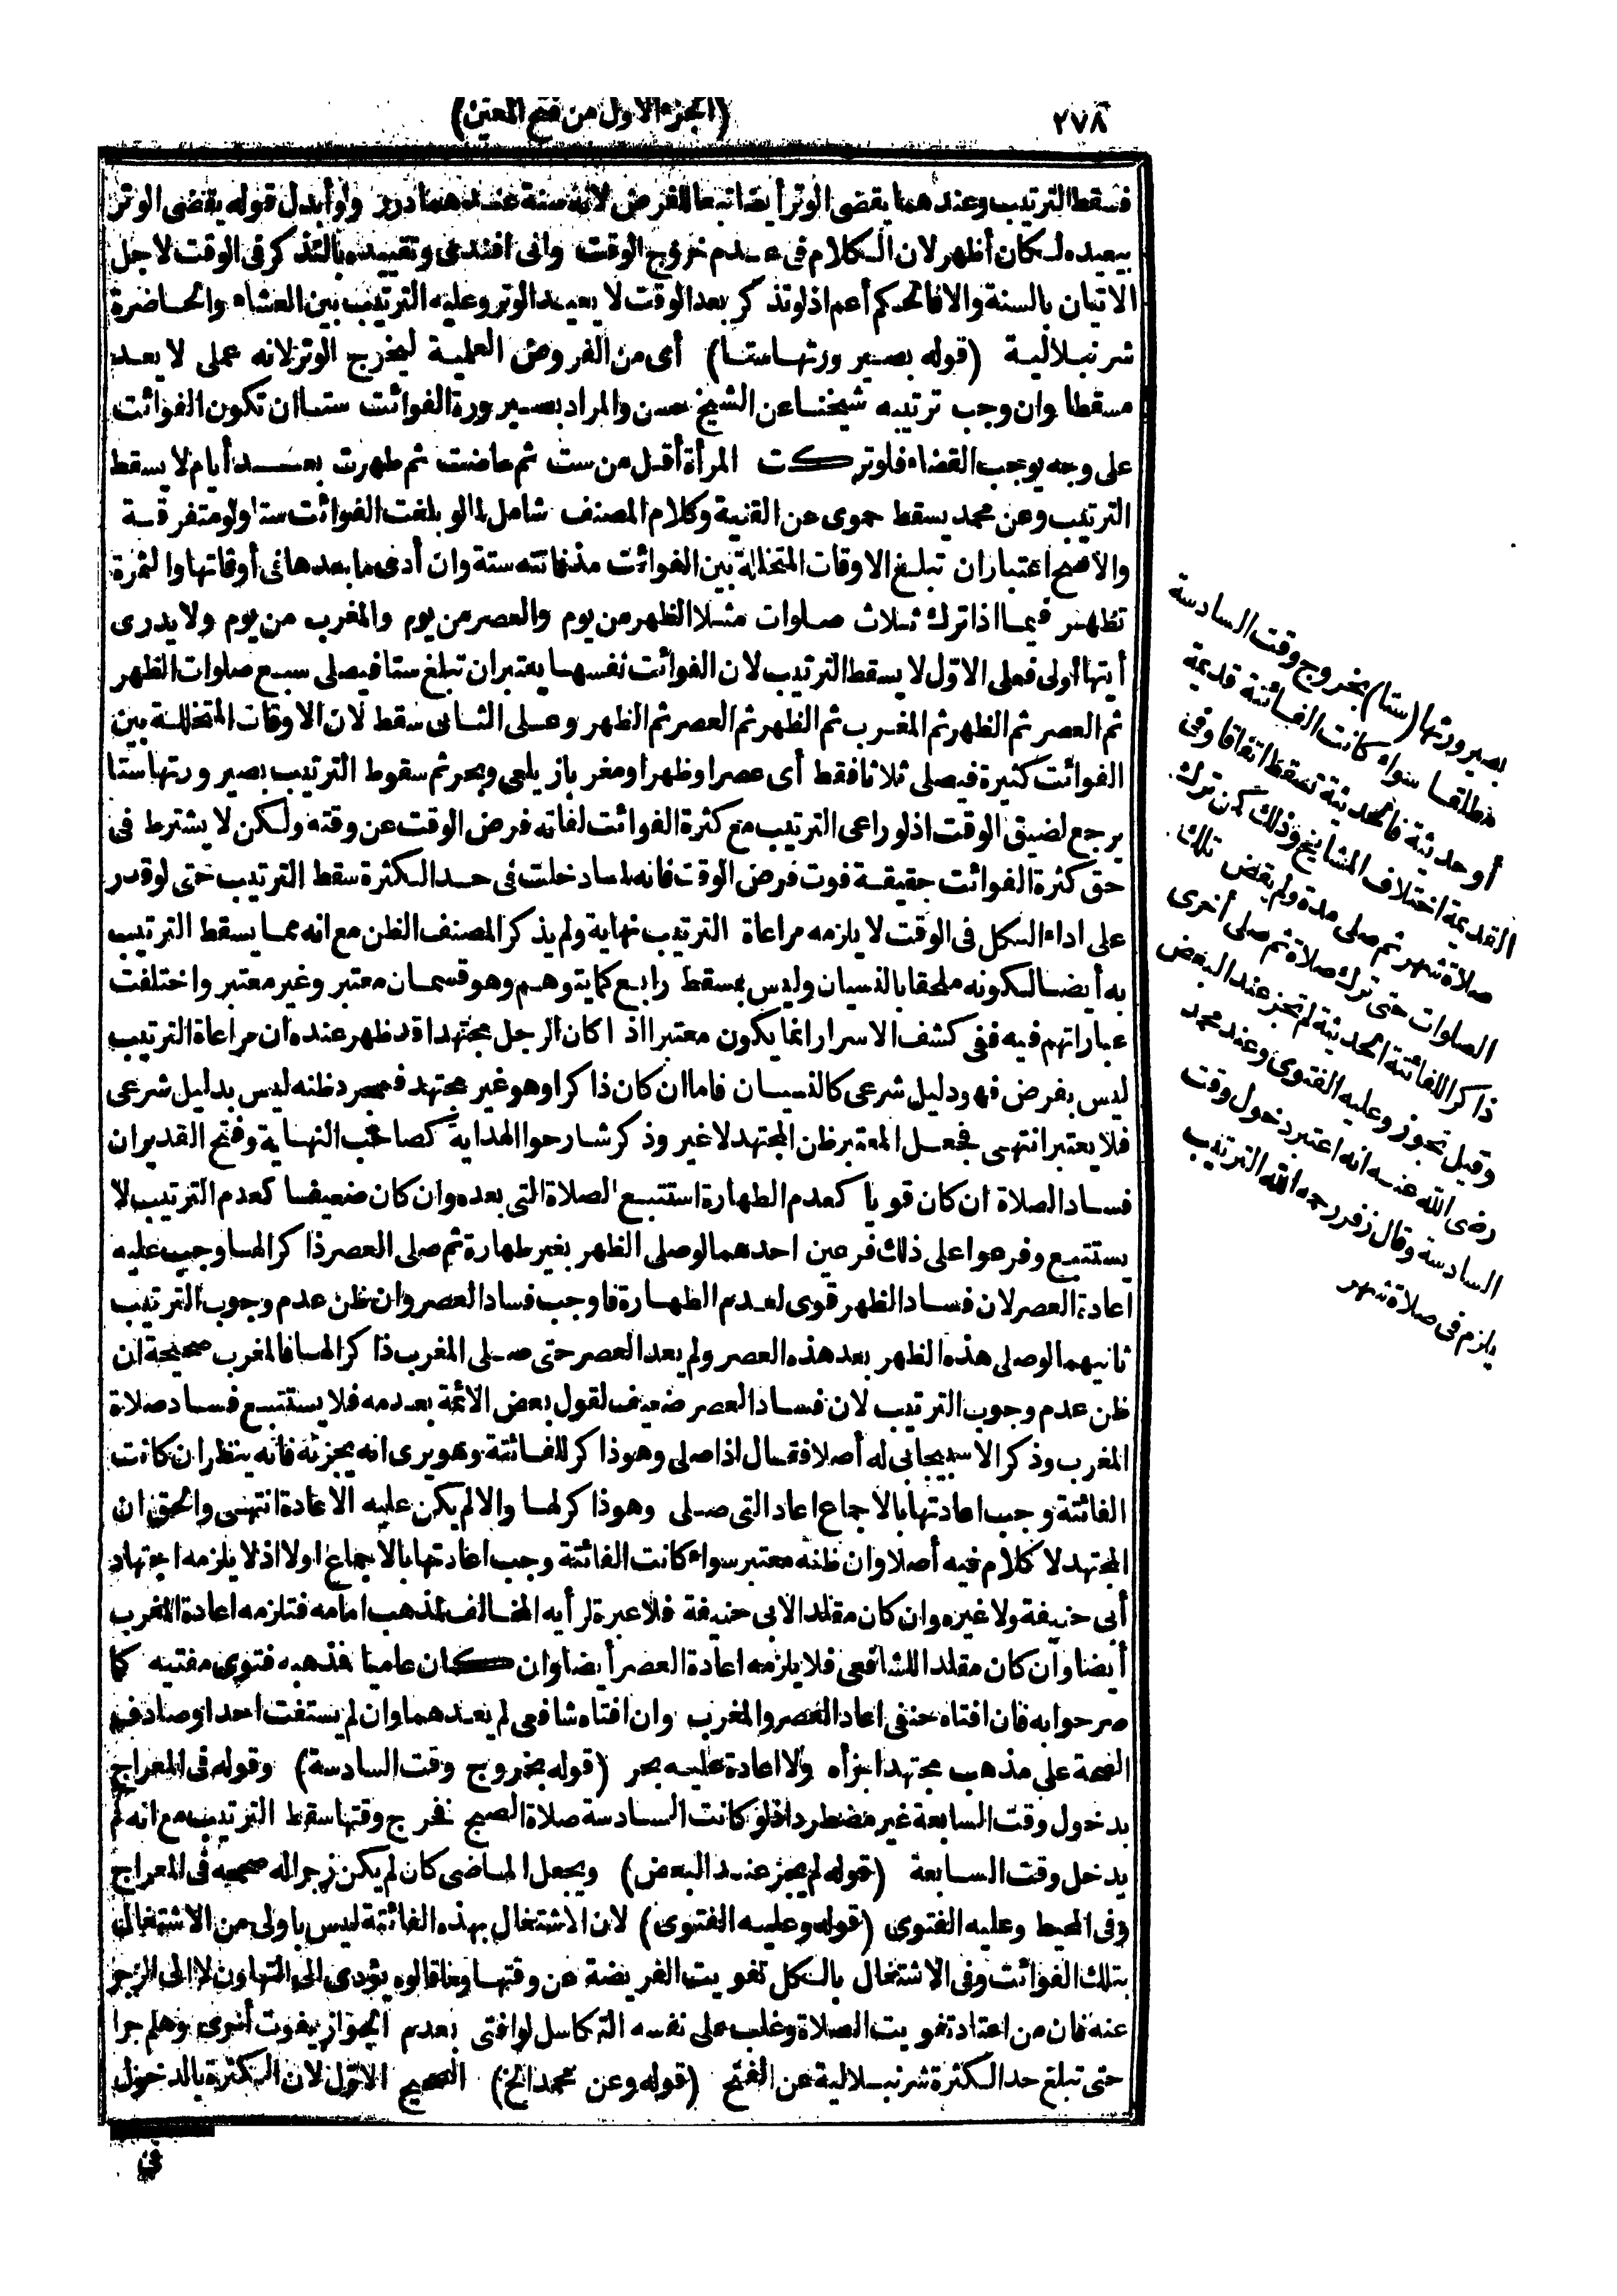 ٢٧٨
(الجزء الاول من فتح المعين)
فسقط الترتيب وعندهما يقضى الوتر أيضا تبعا للفرض لانه سنة عندهما درر ولو أبدل قوله يقضى الوتر
بيعيده لكان أظهر لان الكلام فى عدم خروج الوقت وانى افندى وتقييده بالتذكر فى الوقت لاجل
الاتيان بالسنة والا فالحكم أعم اذ لو تذكر بعد الوقت لا يعيد الوتر وعليه الترتيب بين العشاء والحاضرة
شرنبلالية (قوله بصيرورتها ستا) أى من الفروض العملية ليخرج الوتر لانه عملى لا يعد
مسقطا وان وجب ترتيبه شيخنا عن الشيخ حسن والمراد بصيرورة الفوائت ستا ان تكون الفوائت
على وجه يوجب القضاء فلو تركت المرأة أقل من ست ثم حاضت ثم طهرت بعد أيام لا يسقط
الترتيب وعن محمد يسقط حموى عن القنية وكلام المصنف شامل لما لو بلغت الفوائت ستا ولو متفرقة
والاصح اعتبار ان تبلغ الاوقات المتخللة بين الفوائت مذ فاتته ستة وان أدى ما بعدها فى أوقاتها والثمرة
تظهر فيما اذا ترك ثلاث صلوات مثلا الظهر من يوم والعصر من يوم والمغرب من يوم ولا يدرى
أيتها أولى فعلى الاول لا يسقط الترتيب لان الفوائت نفسها يعتبر ان تبلغ ستا فيصلى سبع صلوات الظهر
ثم العصر ثم الظهر ثم المغرب ثم الظهر ثم العصر ثم الظهر وعلى الثانى سقط لان الاوقات المتخللة بين
الفوائت كثيرة فيصلى ثلاثا فقط أى عصرا وظهرا ومغربا زيلعى وبحر ثم سقوط الترتيب بصيرورتها ستا
يرجع لضيق الوقت اذ لو راعى الترتيب مع كثرة الفوائت لفاته فرض الوقت عن وقته ولكن لا يشترط فى
حق كثرة الفوائت حقيقة فوت فرض الوقت فانه لما دخلت فى حد الكثرة سقط الترتيب حتى لو قدر
على اداء الكل فى الوقت لا يلزمه مراعاة الترتيب نهاية ولم يذكر المصنف الظن مع انه مما يسقط الترتيب
به أيضا لكونه ملحقا بالنسيان وليس بمسقط رابع كما يتوهم وهو قسمان معتبر وغير معتبر واختلفت
عباراتهم فيه ففى كشف الاسرار انما يكون معتبرا اذا كان الرجل مجتهدا قد ظهر عنده ان مراعاة الترتيب
ليس بفرض فهو دليل شرعى كالنسيان فاما ان كان ذاكرا وهو غير مجتهد فمجرد ظنه ليس بدليل شرعى
فلا يعتبر انتهى فجعل المعتبر ظن المجتهد لا غير وذكر شارحوا الهداية كصاحب النهاية وفتح القدير ان
فساد الصلاة ان كان قويا كعدم الطهارة استتبع الصلاة التى بعده وان كان ضعيفا كعدم الترتيب لا
يستتبع وفرعوا على ذلك فرعين احدهما لو صلى الظهر بغير طهارة ثم صلى العصر ذاكرا لها وجب عليه
اعادة العصر لان فساد الظهر قوى لعدم الطهارة فاوجب فساد العصر وان ظن عدم وجوب الترتيب
ثانيهما لو صلى هذه الظهر بعد هذه العصر ولم يعد العصر حتى صلى المغرب ذاكرا لها فالمغرب صحيحة ان
ظن عدم وجوب الترتيب لان فساد العصر ضعيف لقول بعض الائمة بعدمه فلا يستتبع فساد صلاة
المغرب وذكر الاسبيجابى له أصلا فقال اذا صلى وهو ذاكر للفائتة وهو يرى انه يجزئه فانه ينظر ان كانت
الفائتة وجب اعادتها بالاجماع اعاد التى صلى وهو ذاكر لها والا لم يكن عليه الاعادة انتهى والحق ان
المجتهد لا كلام فيه أصلا وان ظنه معتبر سواء كانت الفائتة وجب اعادتها بالاجماع اولا اذ لا يلزمه اجتهاد
أبى حنيفة ولا غيره وان كان مقلدا لابى حنيفة فلا عبرة لرأيه المخالف لمذهب امامه فتلزمه اعادة المغرب
أيضا وان كان مقلدا للشافعى فلا يلزمه اعادة العصر أيضا وان كان عاميا فمذهبه فتوى مفتيه كما
صرحوا به فان افتاه حنفى اعاد العصر والمغرب وان افتاه شافعى لم يعدهما وان لم يستفت احدا وصادف
الصحة على مذهب مجتهد اجزأه ولا اعادة عليه بحر (قوله بخروج وقت السادسة) وقوله فى المعراج
بدخول وقت السابعة غير مضطرد اذ لو كانت السادسة صلاة الصبح فخرج وقتها سقط الترتيب مع انه لم
يدخل وقت السابعة (قوله لم يجز عند البعض) ويجعل الماضى كان لم يكن زجرا له صححه فى المعراج
وفى المحيط وعليه الفتوى (قوله وعليه الفتوى) لان الاشتغال بهذه الفائتة ليس باولى من الاشتغال
بتلك الفوائت وفى الاشتغال بالكل تفويت الفريضة عن وقتها وما قالوه يؤدى الى التهاون لا الى الزجر
عنه فان من اعتاد تفويت الصلاة وغلب على نفسه التكاسل لو افتى بعدم الجواز يفوت أخرى وهلم جرا
حتى تبلغ حد الكثرة شرنبلالية عن الفتح (قوله وعن محمد الخ) الصحيح الاول لان الكثرة بالدخول
فى
بصيرورتها (ستا) بخروج وقت السادسة
مطلقا سواء كانت الفائتة قديمة
أو حديثة فالحديثة تسقط اتفاقا وفى
القديمة اختلاف المشايخ وذلك كمن ترك
صلاة شهر ثم صلى مدة ولم يقض تلك
الصلوات حتى ترك صلاة ثم صلى أخرى
ذاكرا للفائتة الحديثة لم تجز عند البعض
وقيل تجوز وعليه الفتوى وعند محمد
رضى الله عنه انه اعتبر دخول وقت
السادسة وقال زفر رحمه الله الترتيب
يلزم فى صلاة شهر